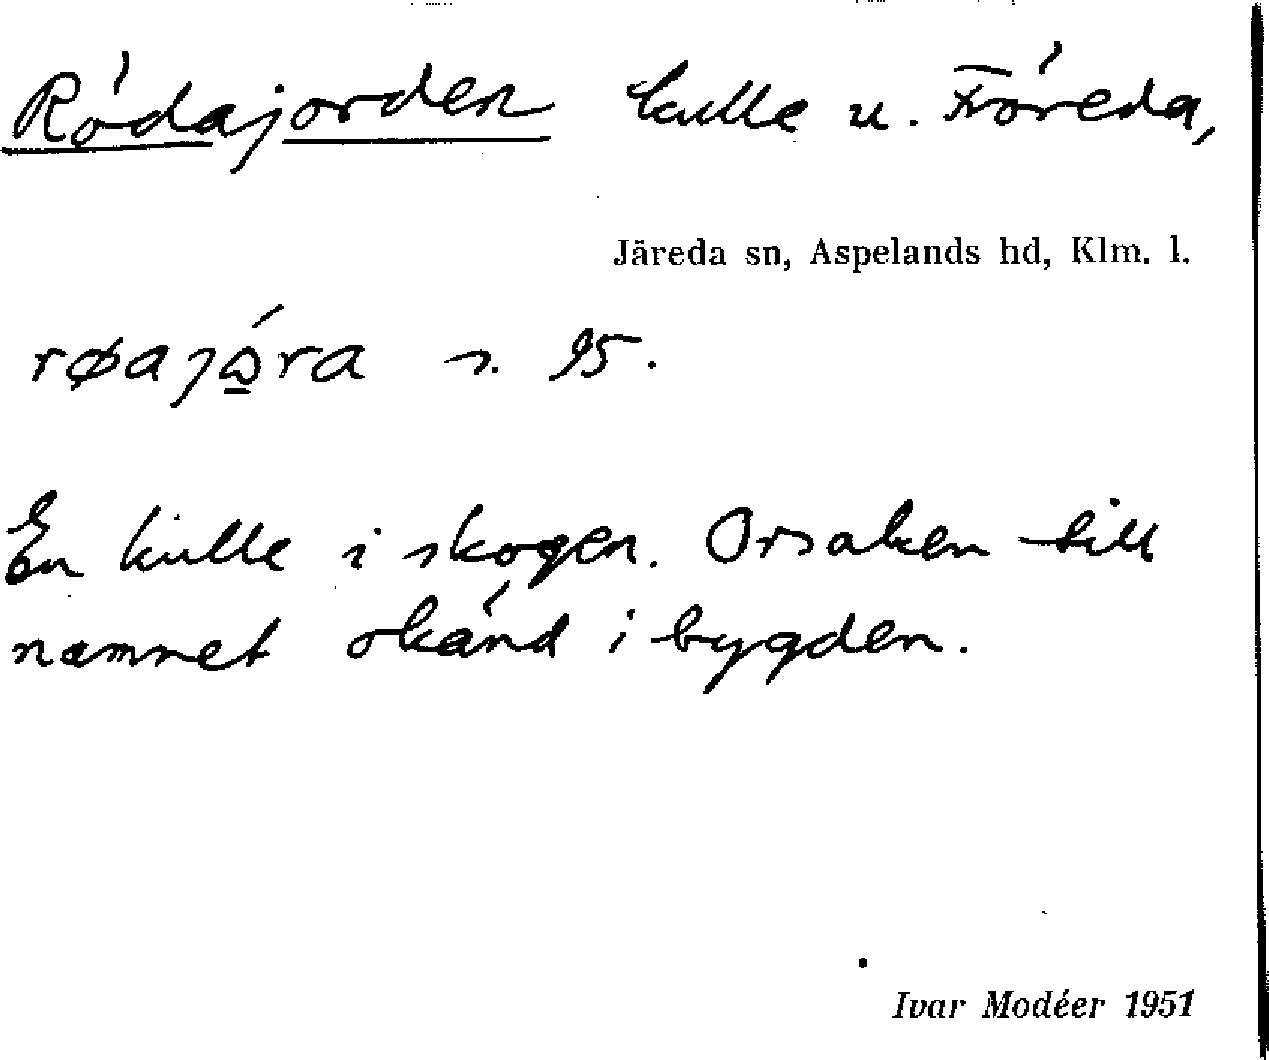 Rödajorden kulle u. Fröreda,
Järeda sn, Aspelands hd, Klm. l.
s. 95.
En kulle i skogen. Orsaken till
namnet okänd i bygden.
Ivar Modéer 1951